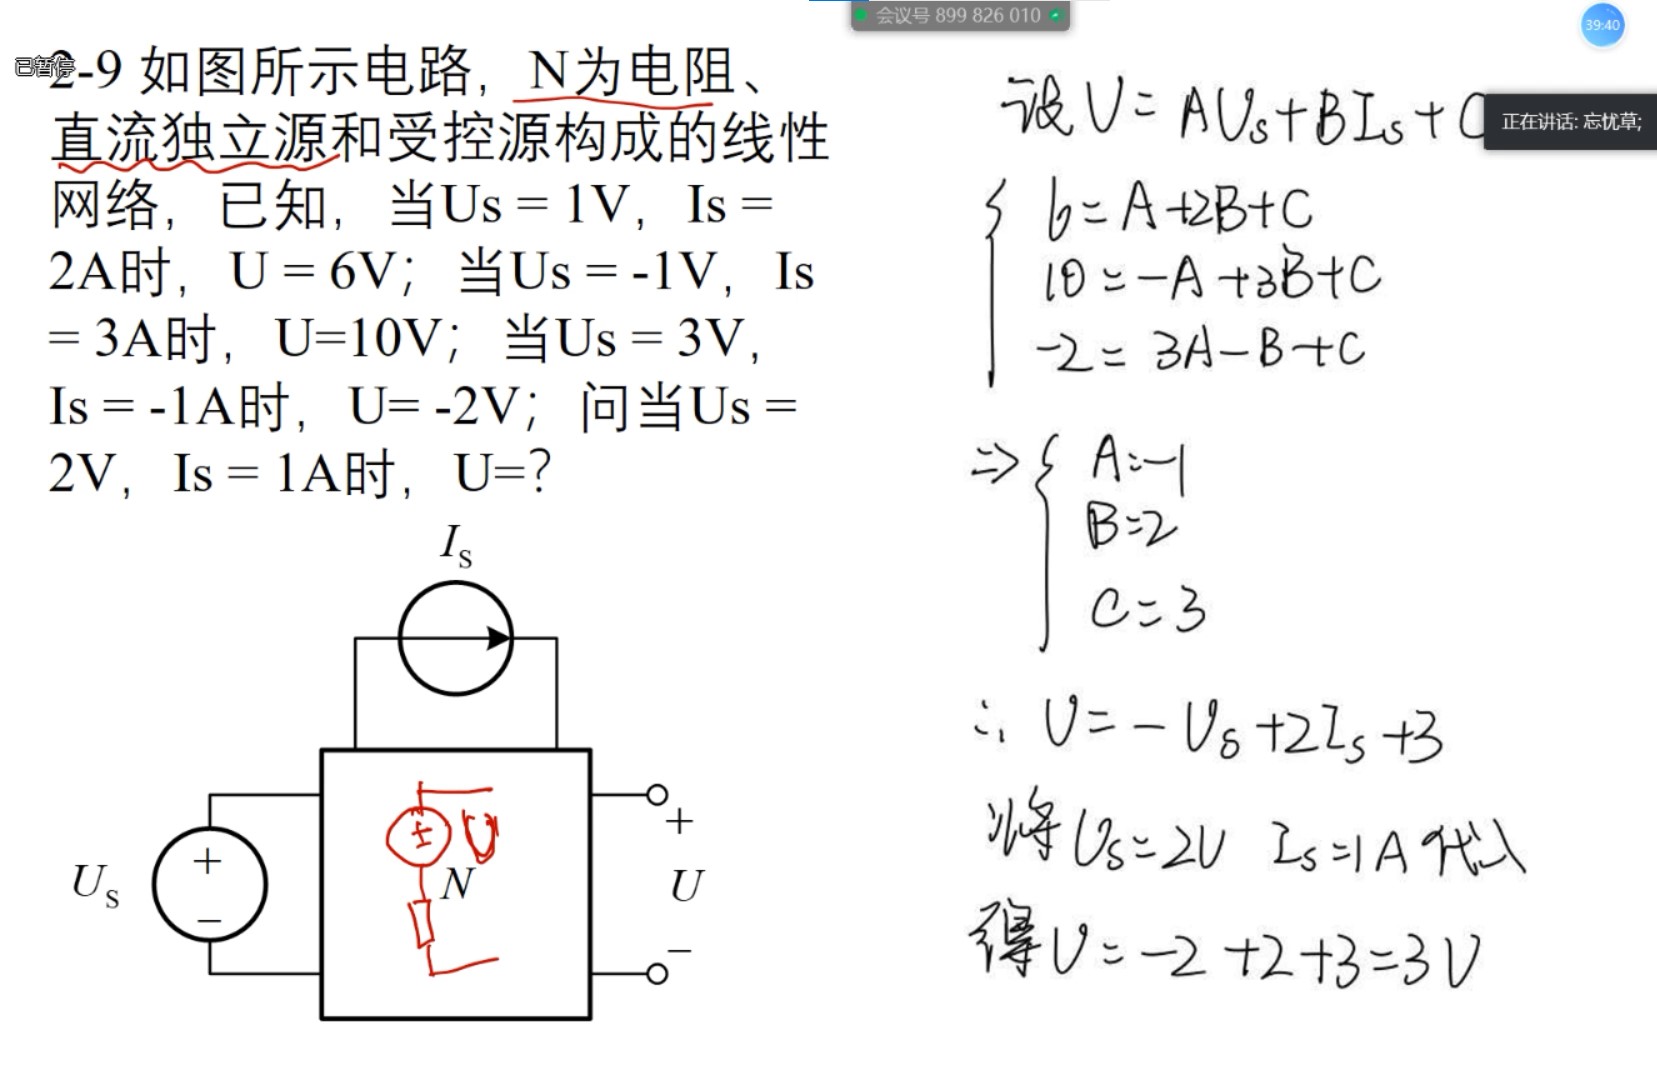 会议号 899 826 010
39:40
已暂停
2-9 如图所示电路，N为电阻、
直流独立源和受控源构成的线性
网络，已知，当Us = 1V，Is =
2A时，U = 6V；当Us = -1V，Is
= 3A时，U=10V；当Us = 3V，
Is = -1A时，U= -2V；问当Us =
2V，Is = 1A时，U=？
I_S
U_S
+
−
± U
N
+
U
−
设 U = AUs+BIs+C
正在讲话: 忘忧草;
6=A+2B+C
10=-A+3B+C
-2=3A-B+C
⇒ { A=-1
B=2
C=3
∴ U=-Us+2Is+3
将Us=2V Is=1A 代入
得U=-2+2+3=3V